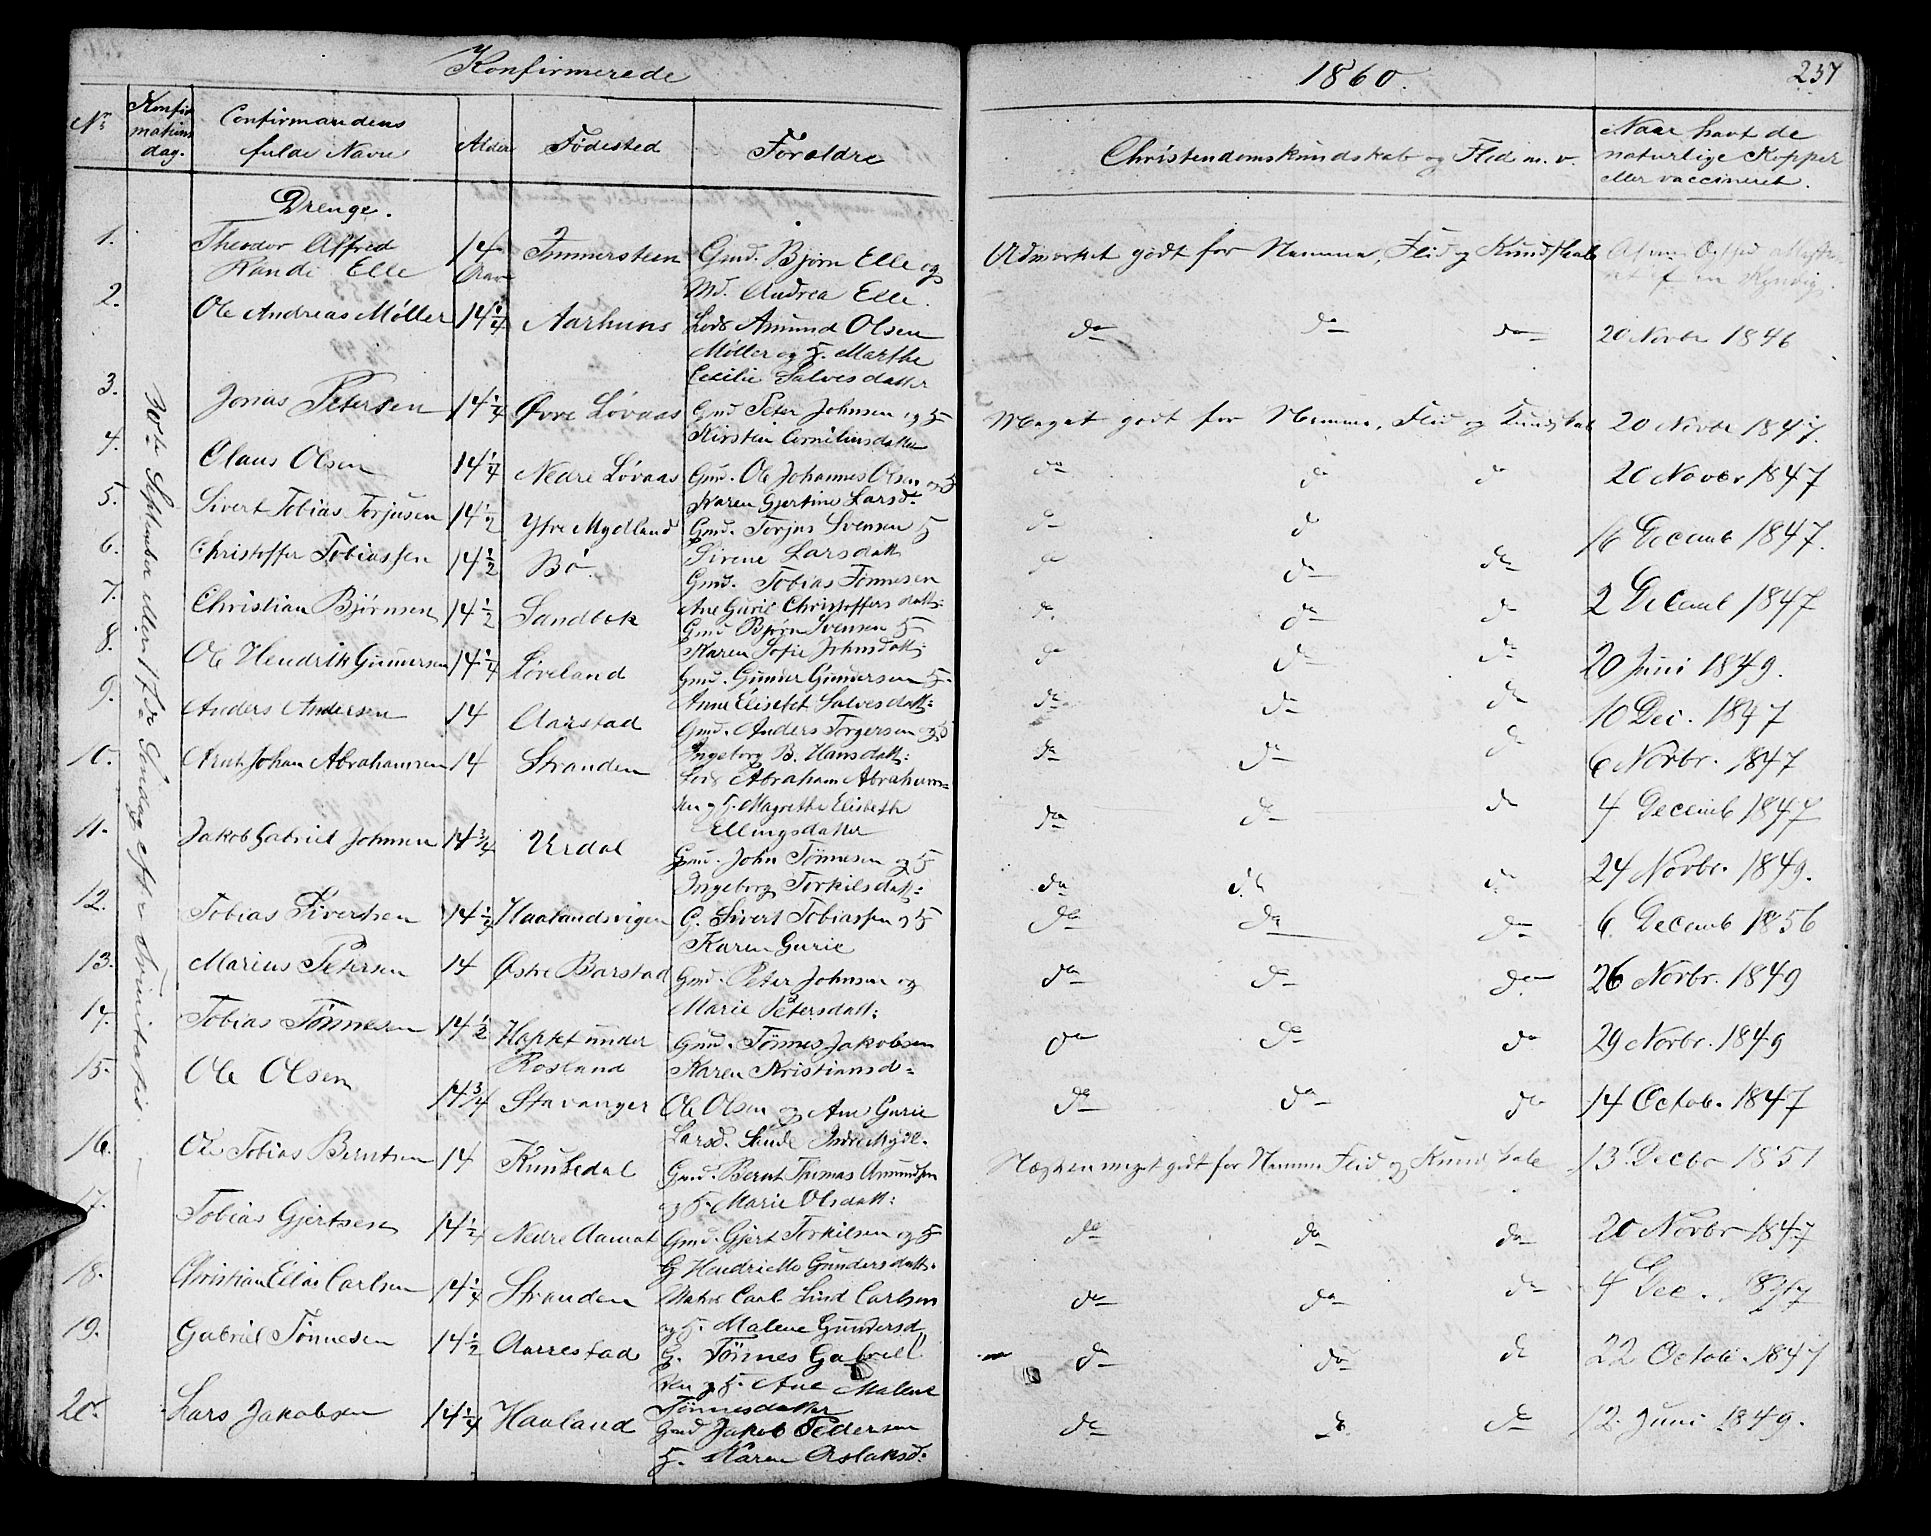 Konfirmerede
1860.
237
No
Konfirmations dag.
Confirmandens fulde Navn
Alder
Fødested
Forældre
Christendomskundskab og Flid m. v.
Naar havt de naturlige Kopper eller vaccineret.
Drenge.
30te September eller 17de Søndag efter Trinitatis.
1. Theodor Alfred Randi Elle 14 Aar Gmd. Bjørn Elle og Md. Andrea Elle. Udmærket godt for Nemme, Flid og Kundskab
2. Ole Andreas Møller 14 1/4 Aarhuus Lods Amund Olsen Møller og H. Marthe Cecilie Salvesdatter do do do 20 Novbr 1846
3. Jonas Petersen 14 1/4 Øvre Løvaas Gmd Peter Johnsen og H Kirstin Corneliusdatter Meget godt for Nemme, Flid og Kundskab 20 Novbr 1847.
4. Claus Olsen 14 1/4 Nedre Løvaas Gmd. Ole Johannes Olsen og H Karen Gjertine Larsd. do do do 20 Novbr 1847
5. Sivert Tobias Torjusen 14 1/2 Ytre Mydland Gmd. Torjus Svensen H Sirene Larsdatt do d 16 Decemb 1847.
6. Christoffer Tobiassen 14 1/2 Bø. Gmd. Tobias Tønnesen Ane Gurie Christoffersdatt: do do do 2 Decemb 1847
7. Christian Bjørnsen 14 1/2 Sandbek Gmd Bjørn Svensen H Karen Sofie Johnsdatt: do do do 20 Juni 1849.
8. Ole Hendrik Gunnersen 14 1/4 Løveland Gmd. Gunder Gundersen H. Anne Elisebet Salvesdatt: do do do 10 Dec. 1847
9. Anders Andersen 14 Aarstad Gmd. Anders Torgersen og H Ingeborg B. Hansdatt: do do do 6 Novbr. 1847
10. Johan Abrahamsen 14 Stranden Lods Abraham Abrahamsen og H. Magrethe Elisbeth Ellingsdatter do do do 4 Decemb 1847
11. Jakob Gabriel Johnsen 14 3/4 Urdal Gmd. John Tønnesen og H Ingeborg Torkilsdatt: do do do 24 Novbr. 1849.
12. Tobias Sivertsen 14 1/2 Haalandsvigen G. Sivert Tobiassen og H Karen Gurie do do do 6 Decemb 1856
13. Marius Petersen 14 Østre Barstad Gmd. Peter Johnsen og Marie Petersdatt: do do do 26 Novbr. 1849
14. Tobias Tønnesen 14 1/2 under Rosland Gmd. Tønnes Jakobsen Karen Kristiansd: do do do 29 Novbr. 1849
15. Ole Olsen 14 3/4 Stavanger Ole Olsen og Ane Gurie Larsd. do do do 14 Octob. 1847
16. Ole Tobias Berntsen 14 Knubedal Gmd. Bernt Thomas Amundsen og H. Marie Olsdatt: Næsten meget godt for Nemme Flid og Kundskab 13 Decbr 1851
17. Tobias Gjertsen 14 1/4 Nedre Aamot Gmd. Gjert Torkilsen og H G Hendrikke Gundersdatt: do do do 20 Novbr 1847
18. Christian Elias Carlsen 14 1/4 Stranden Carl Lind Carlsen og H. Malene Gundersd do do do 4 Dec. 1847
19. Gabriel Tønnesen 14 1/2 Aarrestad G. Tønnes Gabriel sen og H. Ane Malene Tønnesdatter do do do 22 Octob. 1847
20. Lars Jakobsen 14 1/4 Haaland Gmd Jakob Pedersen H. Karen Aslaksd: do do do 12 Juni 1849.